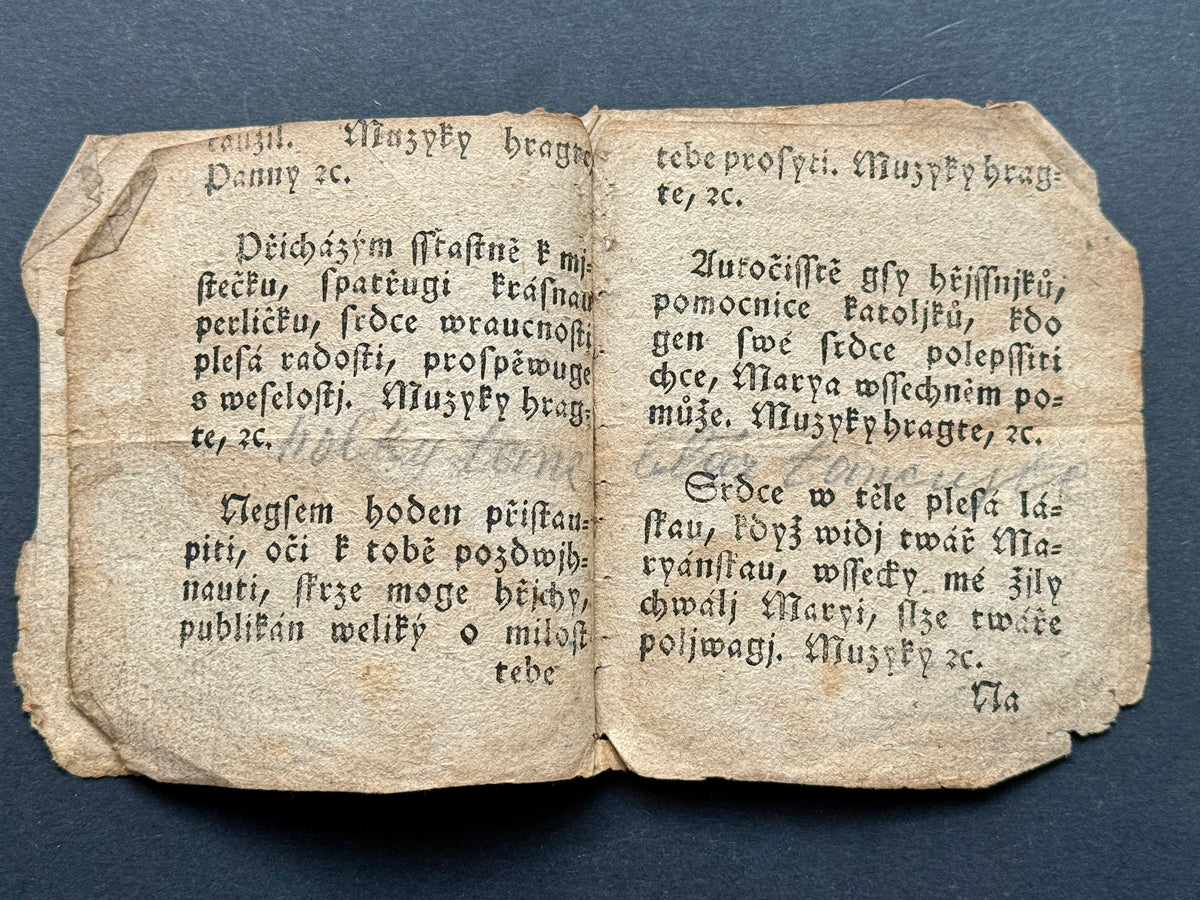 toužil. Muzyky hragte
Panny ꝛc.
Přicházým ſſťaſtně k mj-
ſtečku, ſpatřugi kráſnau
perličku, ſrdce wraucnoſti
pleſá radoſti, proſpěwuge
s weſeloſtj. Muzyky hrag-
te, ꝛc.
holky
Negſem hoden přiſtau-
piti, oči k tobě pozdwjh-
nauti, ſkrze moge hřjchy,
publikán weliký o miloſt
tebe
tebe proſyti. Muzyky hrag-
te, ꝛc.
Autočiſſtě gſy hřjſſnjků,
pomocnice katoljků, kdo
gen ſwé ſrdce polepſſiti
chce, Marya wſſechněm po-
může. Muzyky hragte, ꝛc.
Srdce w těle pleſá lá-
ſkau, když widj twář Ma-
ryánſkau, wſſecky mé žjly
chwálj Maryi, ſlze twáře
poljwagj. Muzyky ꝛc.
Na